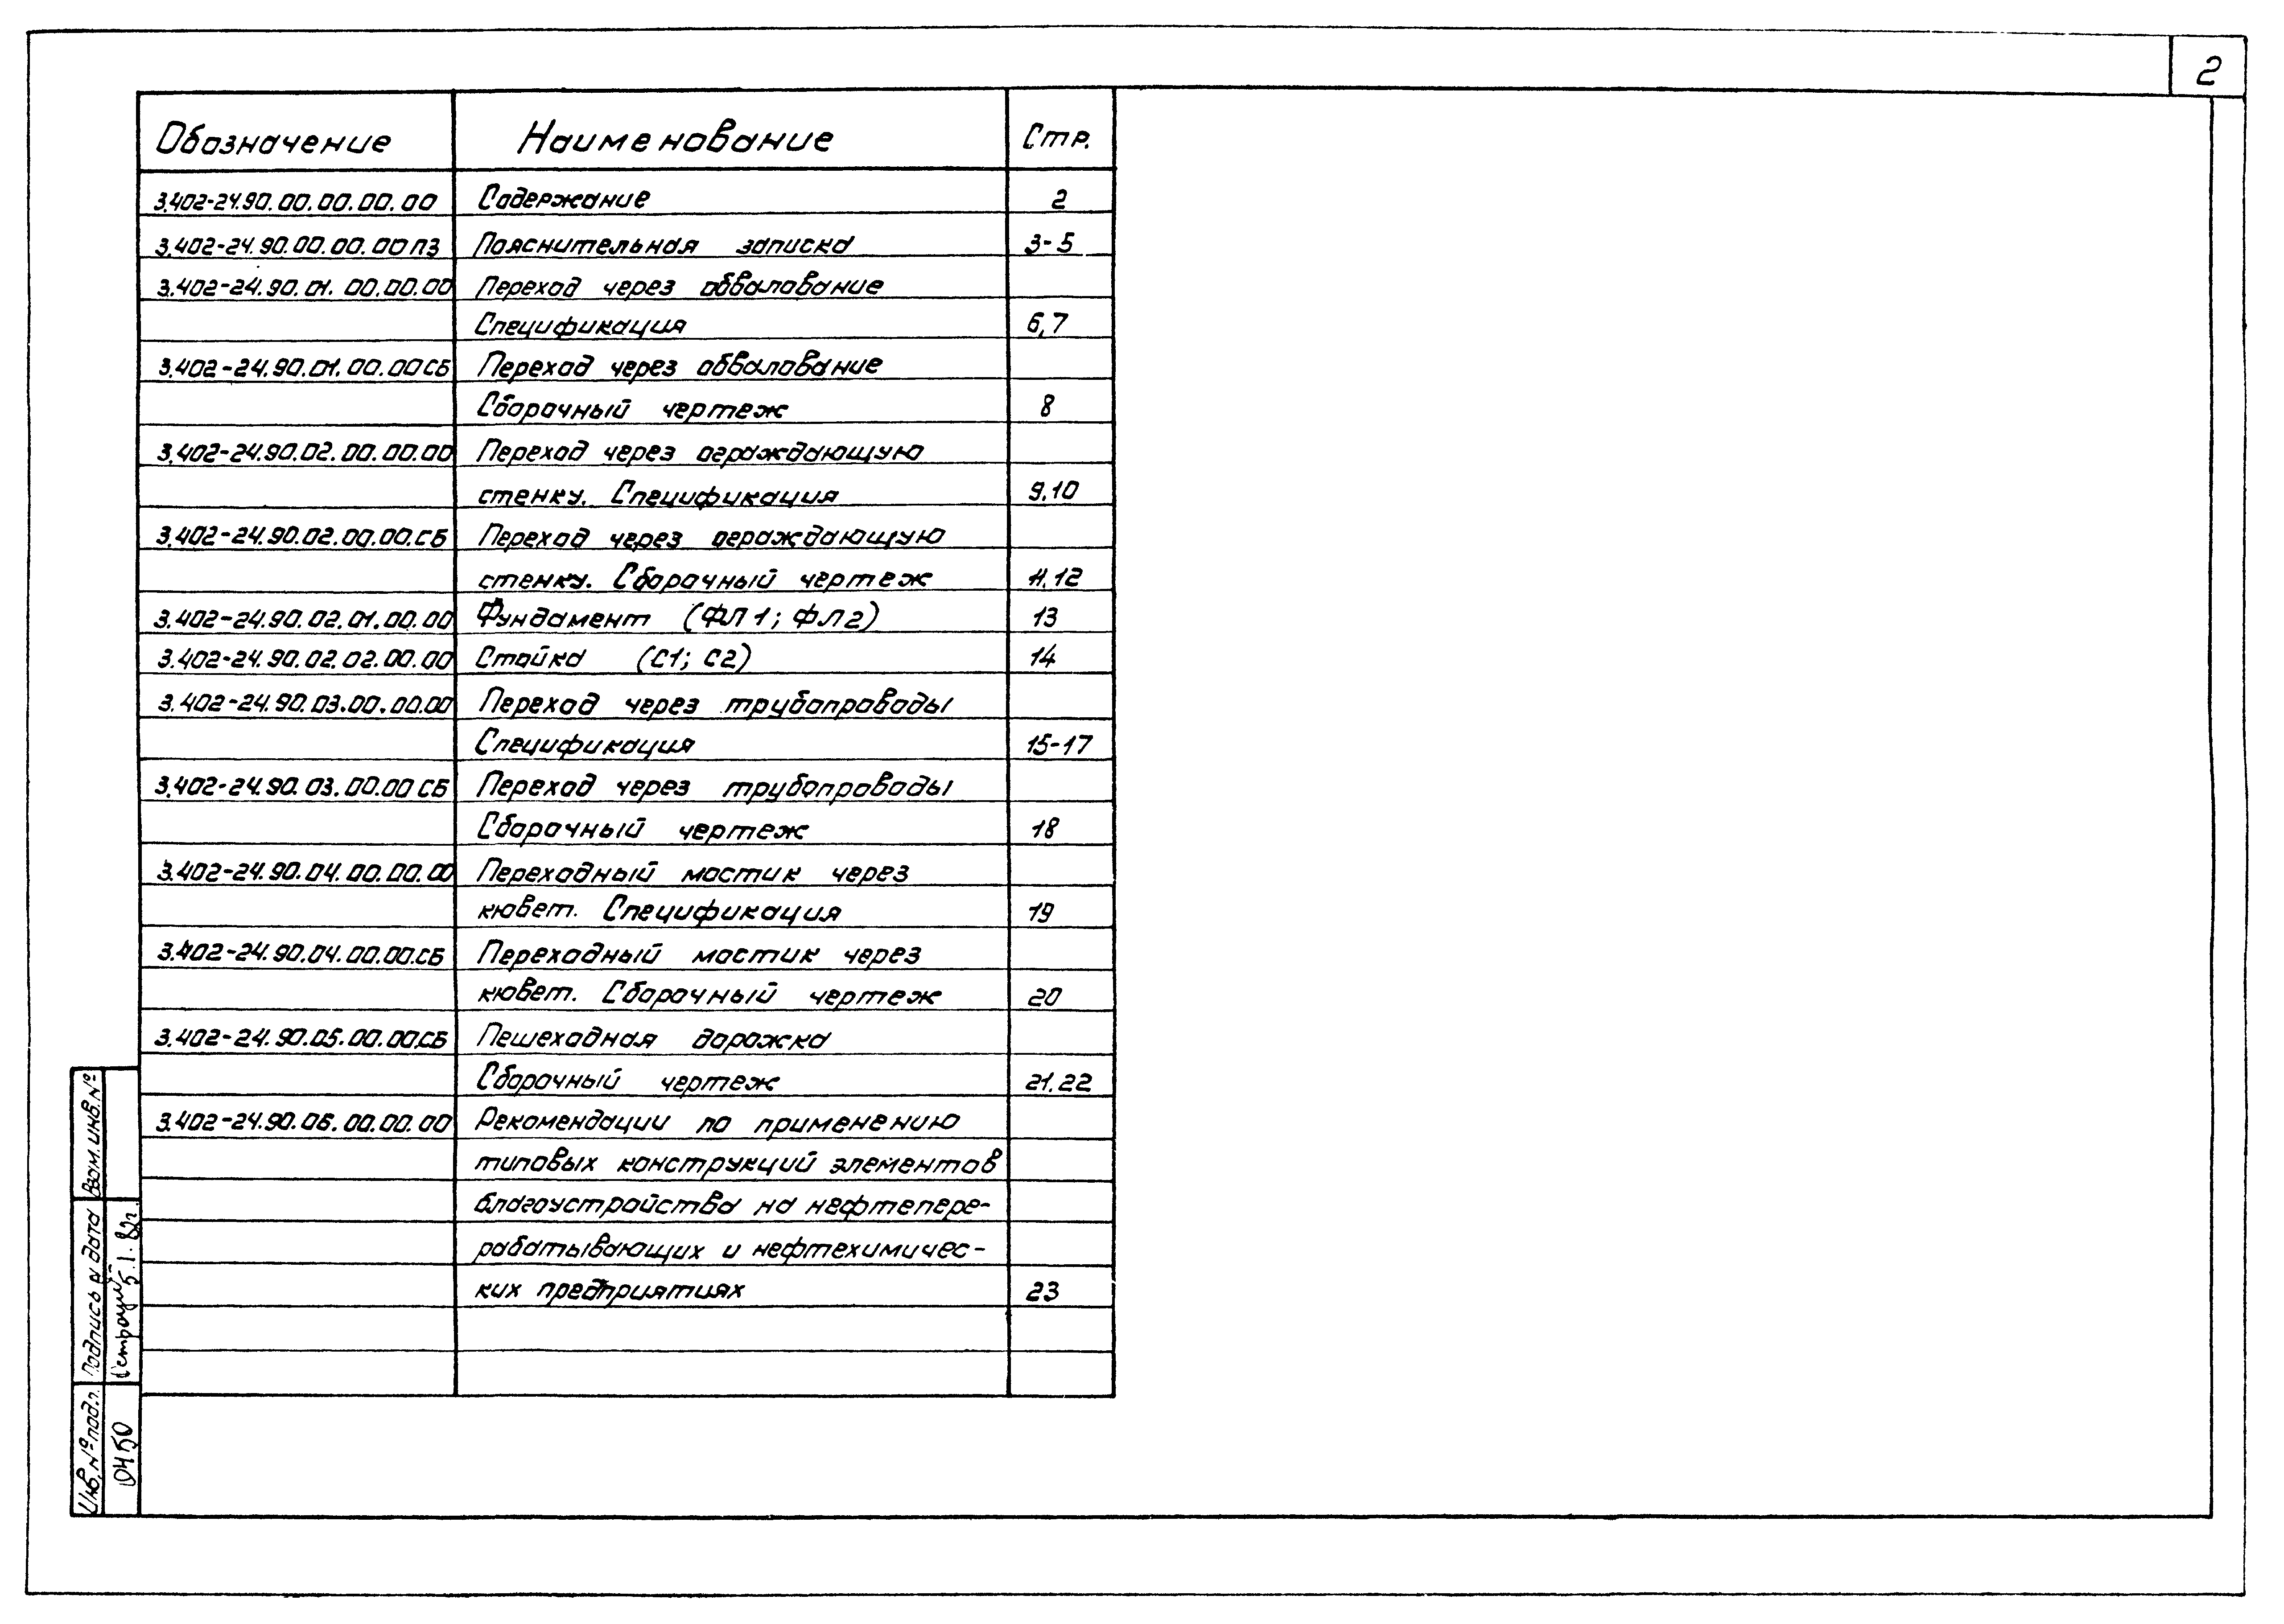 2
Обозначение Наименование Стр.
3.402-24.90.00.00.00.00 Содержание 2
3.402-24.90.00.00.00ПЗ Пояснительная записка 3-5
3.402-24.90.01.00.00.00 Переход через обвалование
Спецификация 6,7
3.402-24.90.01.00.00СБ Переход через обвалование
Сборочный чертеж 8
3.402-24.90.02.00.00.00 Переход через ограждающую
стенку. Спецификация 9,10
3.402-24.90.02.00.00.СБ Переход через ограждающую
стенку. Сборочный чертеж 11,12
3.402-24.90.02.01.00.00 Фундамент (ФЛ1; ФЛ2) 13
3.402-24.90.02.02.00.00 Стойка (С1; С2) 14
3.402-24.90.03.00.00.00 Переход через трубопроводы
Спецификация 15-17
3.402-24.90.03.00.00СБ Переход через трубопроводы
Сборочный чертеж 18
3.402-24.90.04.00.00.00 Переходный мостик через
кювет. Спецификация 19
3.402-24.90.04.00.00.СБ Переходный мостик через
кювет. Сборочный чертеж 20
3.402-24.90.05.00.00.СБ Пешеходная дорожка
Сборочный чертеж 21.22
3.402-24.90.06.00.00.00 Рекомендации по применению
типовых конструкций элементов
благоустройства на нефтепере-
рабатывающих и нефтехимичес-
ких предприятиях 23
Взам.инв.№
Подпись и дата
5.1.82г.
Инв.№ подл.
0450